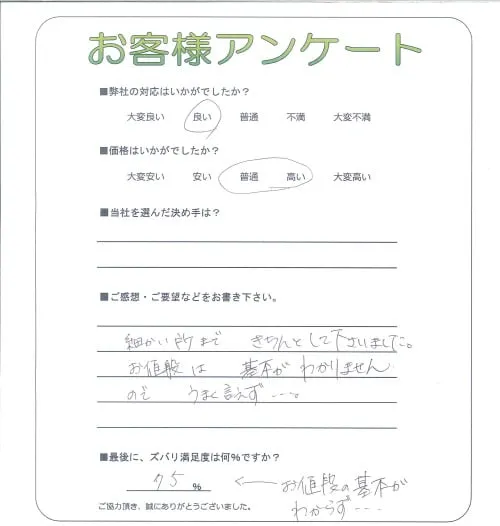 お客様アンケート
■弊社の対応はいかがでしたか？
大変良い 良い 普通 不満 大変不満
■価格はいかがでしたか？
大変安い 安い 普通 高い 大変高い
■当社を選んだ決め手は？
■ご感想・ご要望などをお書き下さい。
細かい所まで きちんとして下さいました。
お値段は 基本がわかりません
ので うまく言えず…。
■最後に、ズバリ満足度は何％ですか？
75 %
←お値段の基本が
わからず…
ご協力頂き、誠にありがとうございました。